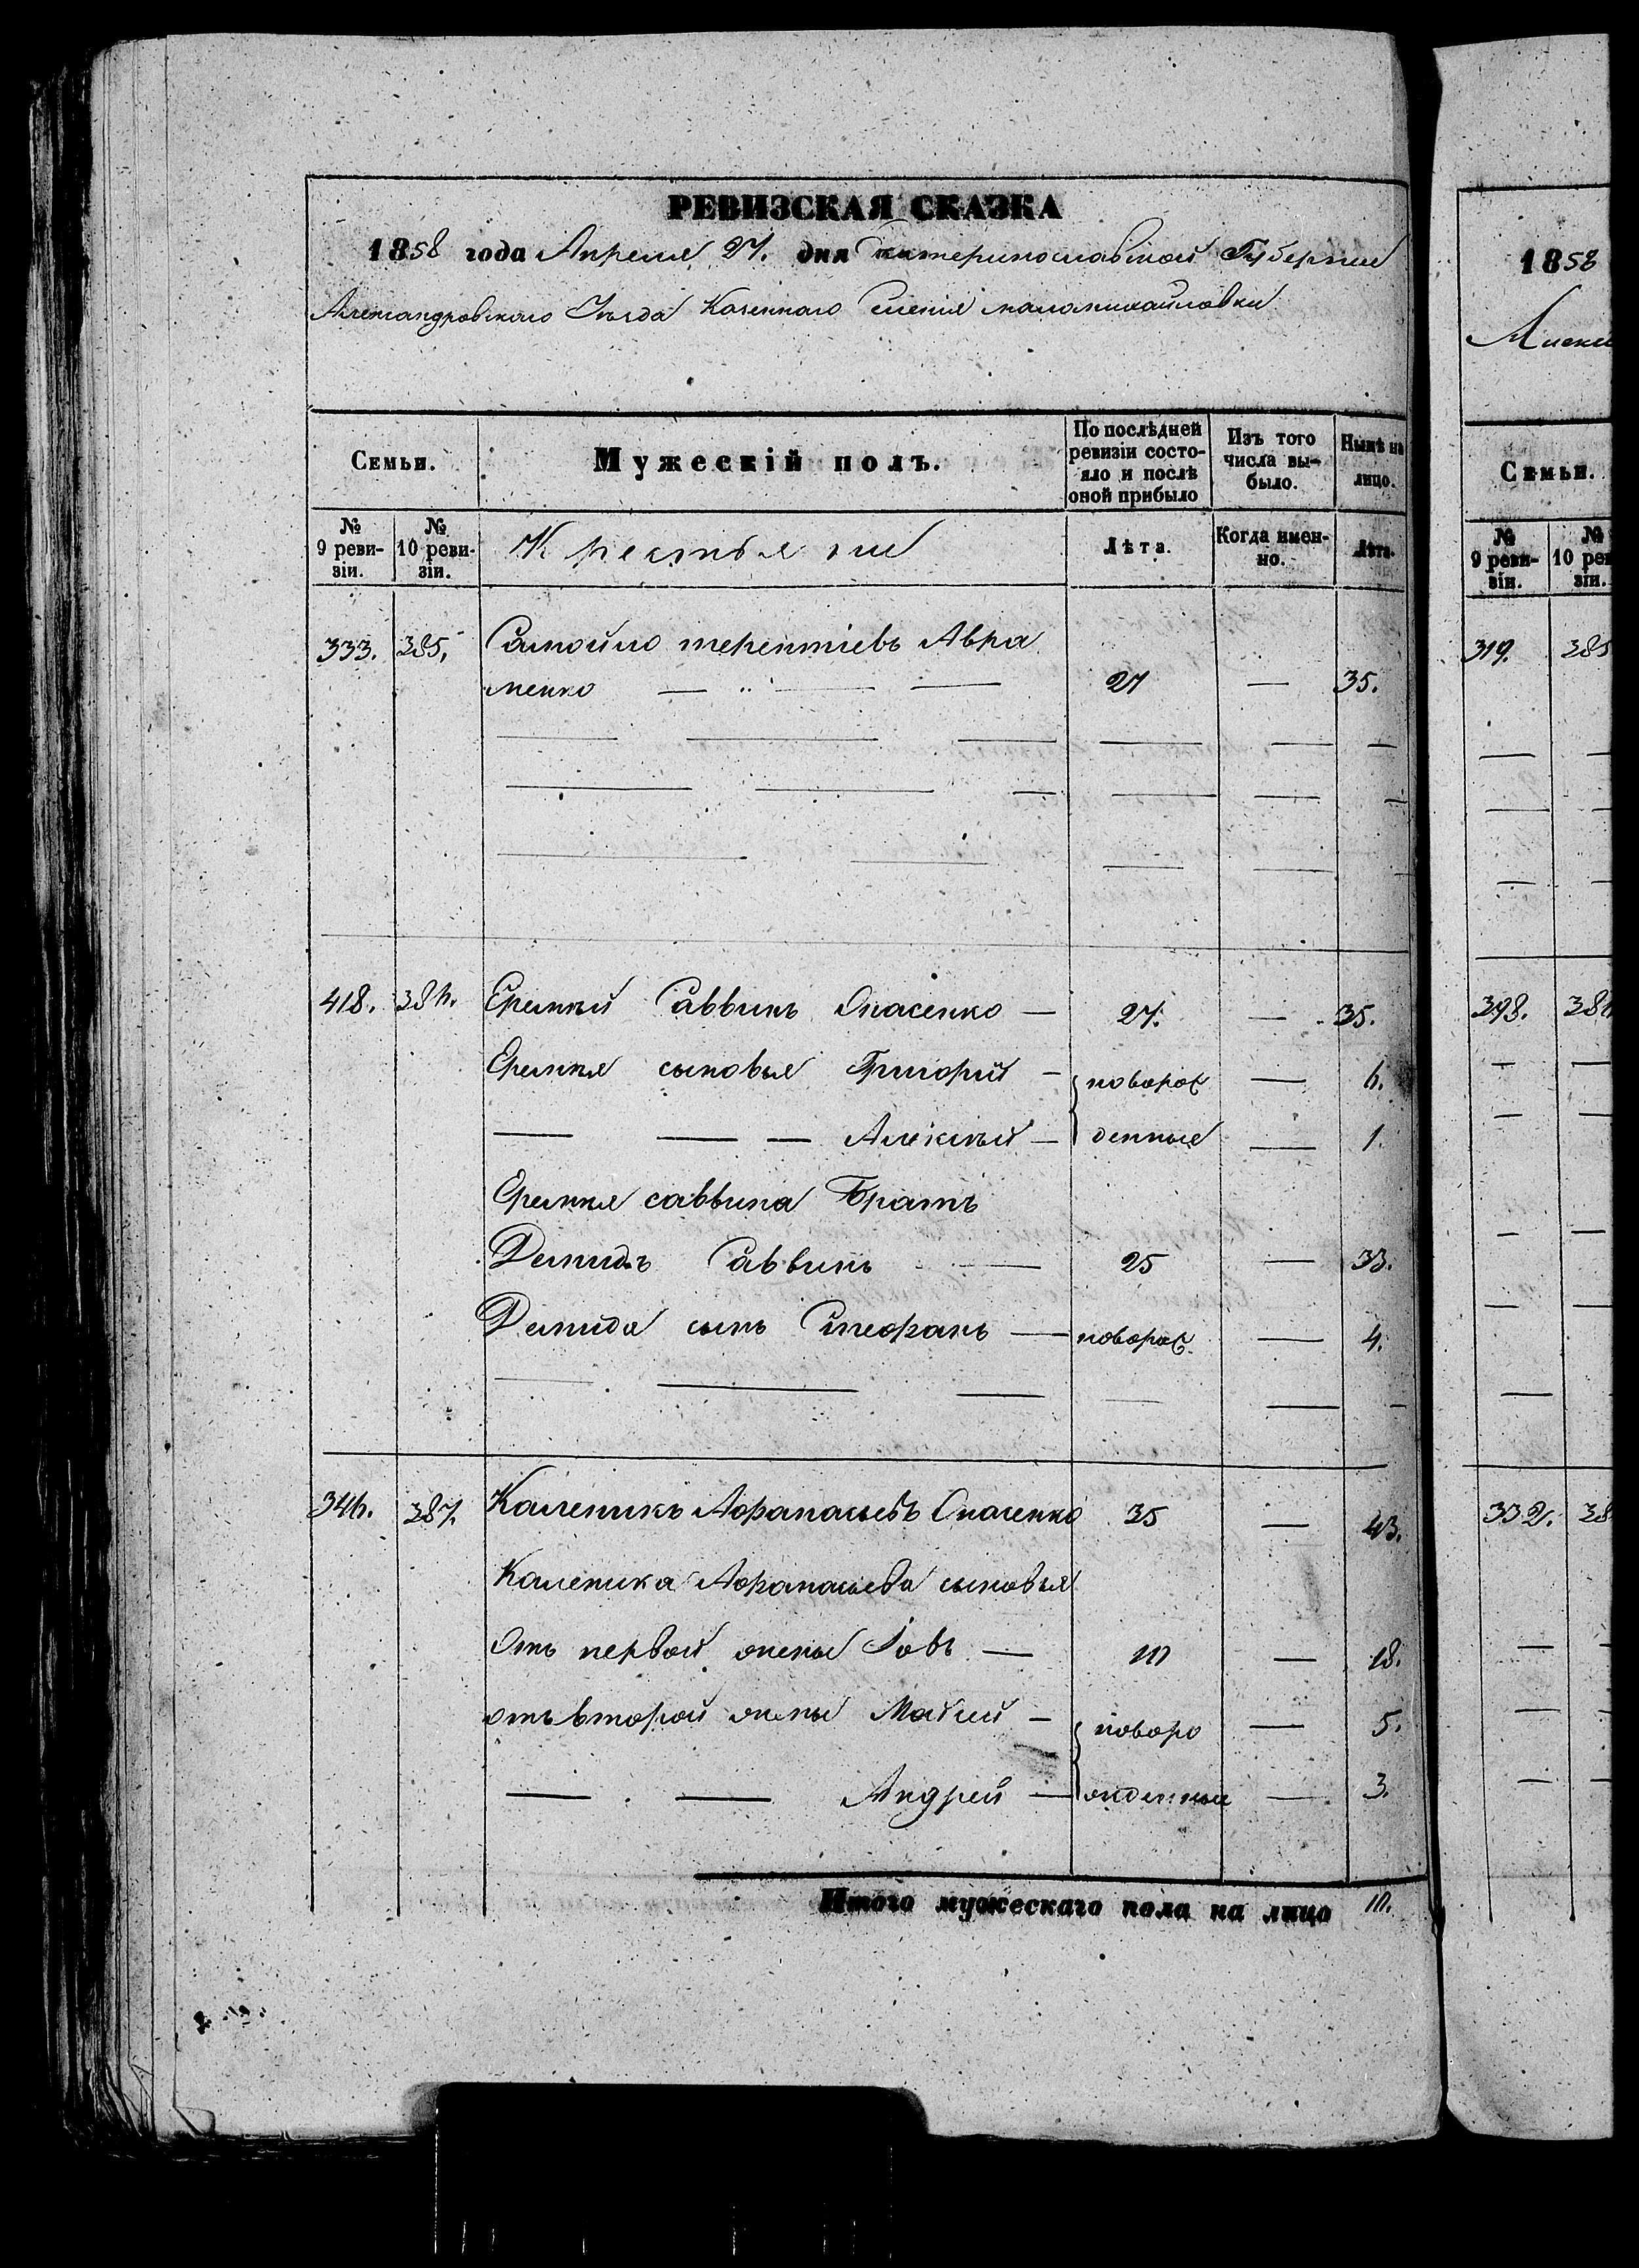 РЕВИЗСКАЯ СКАЗКА
1858 года Апреля 27. дня Екатеринославской Губернии
Александровского Уезда Казенного Селенія маломихайловки
Семьи. Мужескій полъ. По послѣдней ревизіи состояло и послѣ оной прибыло Изъ того числа выбыло. Нынѣ на лицо.
№ 9 ревизіи. № 10 ревизіи. Крестьяне Лѣта. Когда именно. Лѣта.
333. 385. Самойло терентіевъ Авра
менко — — — 27 — 35.
418. 386. Еремѣй Саввинъ Опасенко — 27. — 35.
Еремѣя сыновья Григорій — новорож — 6.
— — — Алексѣй — денные — 1.
Еремѣя саввина Братъ
Демидъ Саввинъ — 25 — 33.
Демида сынъ Стефанъ — новорож. — 4.
346. 387. Каленикъ Афанасьевъ Опасенко 35 — 43.
Каленика Афанасьева сыновья
Отъ первой жены Іовъ — 10 — 18.
отъ второй жены Матвей — новоро — 5.
— — Андрей — жденные — 3.
Итого мужескаго пола на лицо 10.
1858
Алекса
Семьи.
№ 9 ревизіи. № 10 рев зіи.
319. 385
398. 386
332. 38